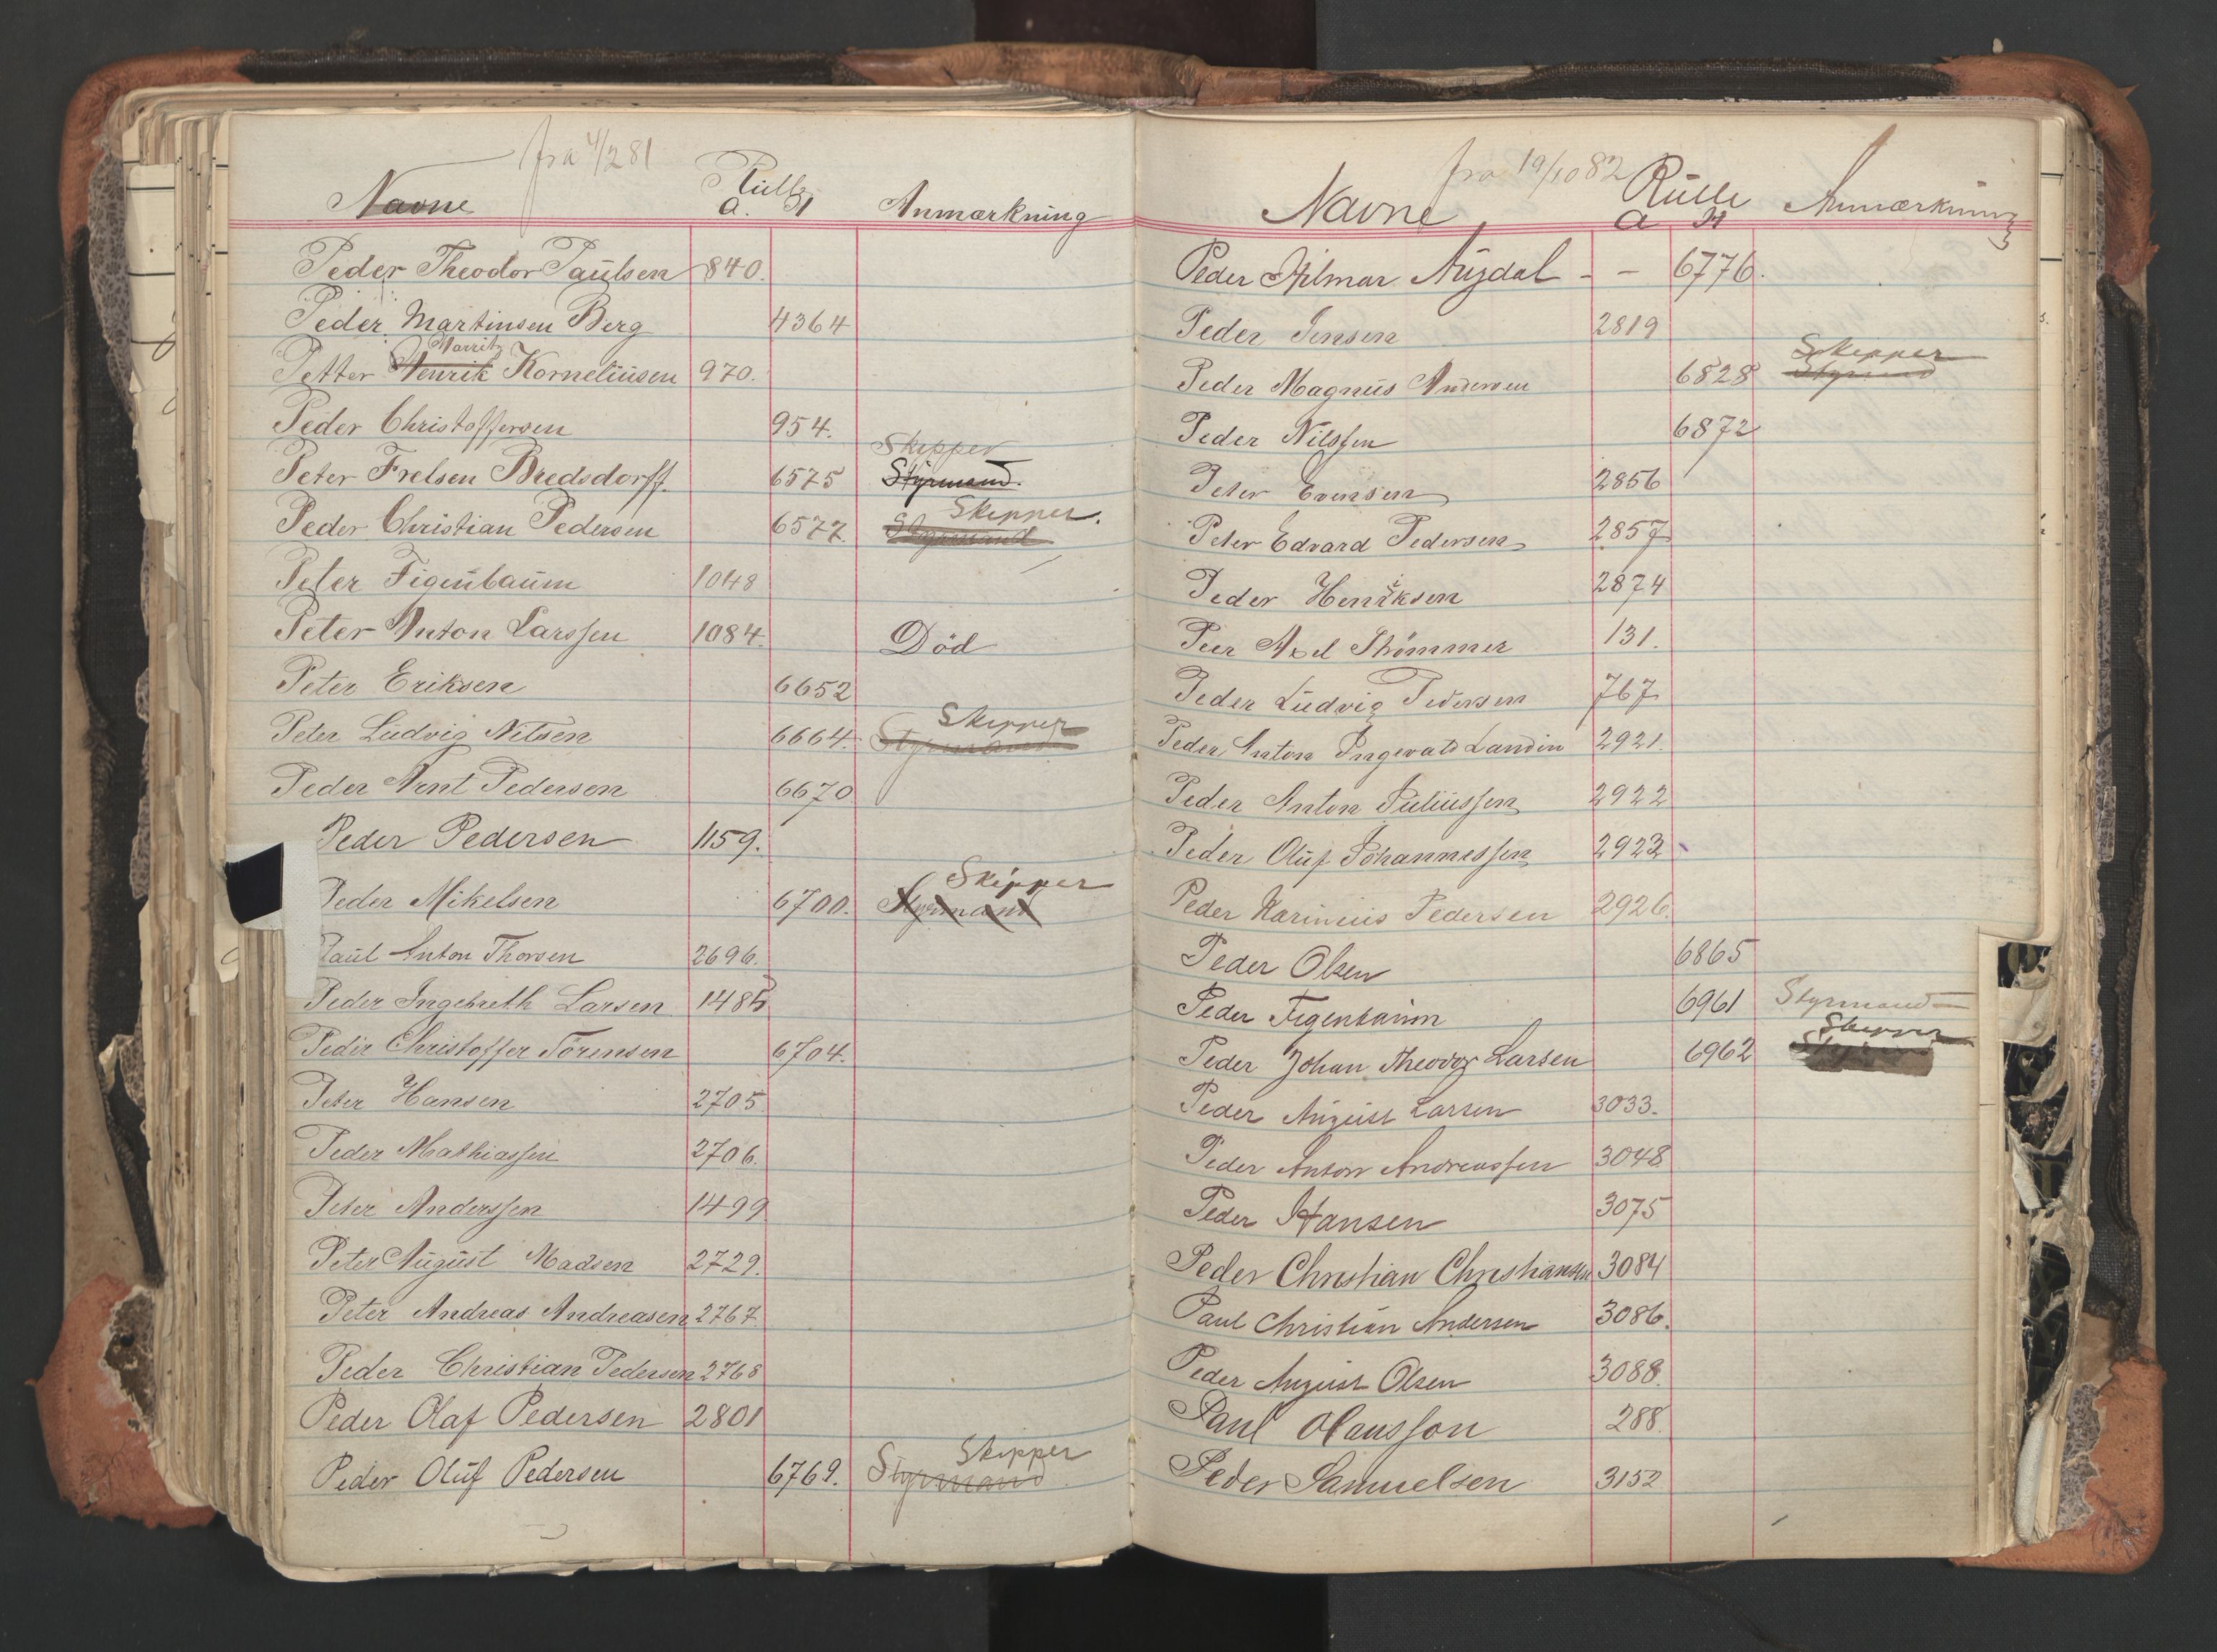 fra 4/2 81
Navne Rulle Anmærkning
a. H
Peder Theodor Paulsen 840.
Peder Martinsen Berg 4364
Mauritz
Petter Henrik Korneliusen 970.
Peder Christoffersen 954.
Skipper
Peter Frelsen Bredsdorff. 6575 Styrmand.
Skipper.
Peder Christian Pedersen 6577. Styrmand
Peter Figenbaum 1048
Peter Anton Larssen 1084. Död
Peter Eriksen 6652
Skipper
Peter Ludvig Nilsen 6664. Styrmand
Peder Arnt Pedersen 6670
Peder Pedersen 1159.
Skipper
Peder Mikelsen 6700. Styrmand
Paul Anton Thorsen 2696.
Peder Ingebreth Larsen 1485
Peder Christoffer Sörensen 6704.
Peter Hansen 2705
Peder Mathiassen 2706.
Peter Anderssen 1499
Peter August Madsen 2729.
Peter Andreas Andreasen 2767
Peder Christian Pedersen 2768
Peder Olaf Pedersen 2801
Skipper
Peder Oluf Pedersen 6769. Styrmand
fra 19/10 82
Navne Rulle Anmærkning
a H
Peder Hilmar Nygdal - - 6776.
Peder Jensen 2819
Skipper
Peder Magnus Andersen 6828 Styrmand
Peder Nilssen 6872
Peter Evensen 2856
Peter Edvard Pedersen 2857
Peder Henriksen 2874
Peer Axel Thömmer 131.
Peder Ludvig Pedersen 767
Peder Anton Ingevald Landin 2921.
Peder Anton Juliussen 2922
Peder Oluf Johannessen 2923
Peder Karinius Pedersen 2926.
Peder Olsen 6865
Peder Figenbaum 6961 Styrmand
Skipper
Peder Johan Theodor Larsen 6962
Peder August Larsen 3033.
Peder Anton Andreassen 3048
Peder Hansen 3075
Peder Christian Christiansen 3084
Paul Christian Andersen 3086.
Peder August Olsen 3088.
Paul Olausson 288.
Peder Samuelsen 3152